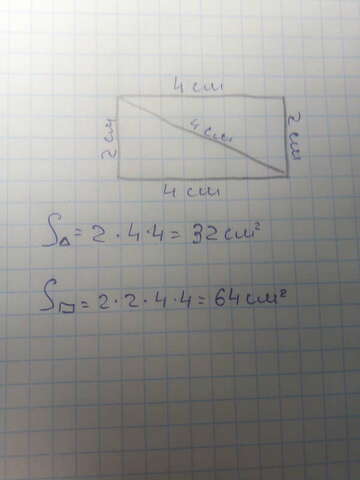 4 см
2 см
4 см
2 см
4 см
S△ = 2 · 4 · 4 = 32 см²
S▭ = 2 · 2 · 4 · 4 = 64 см²